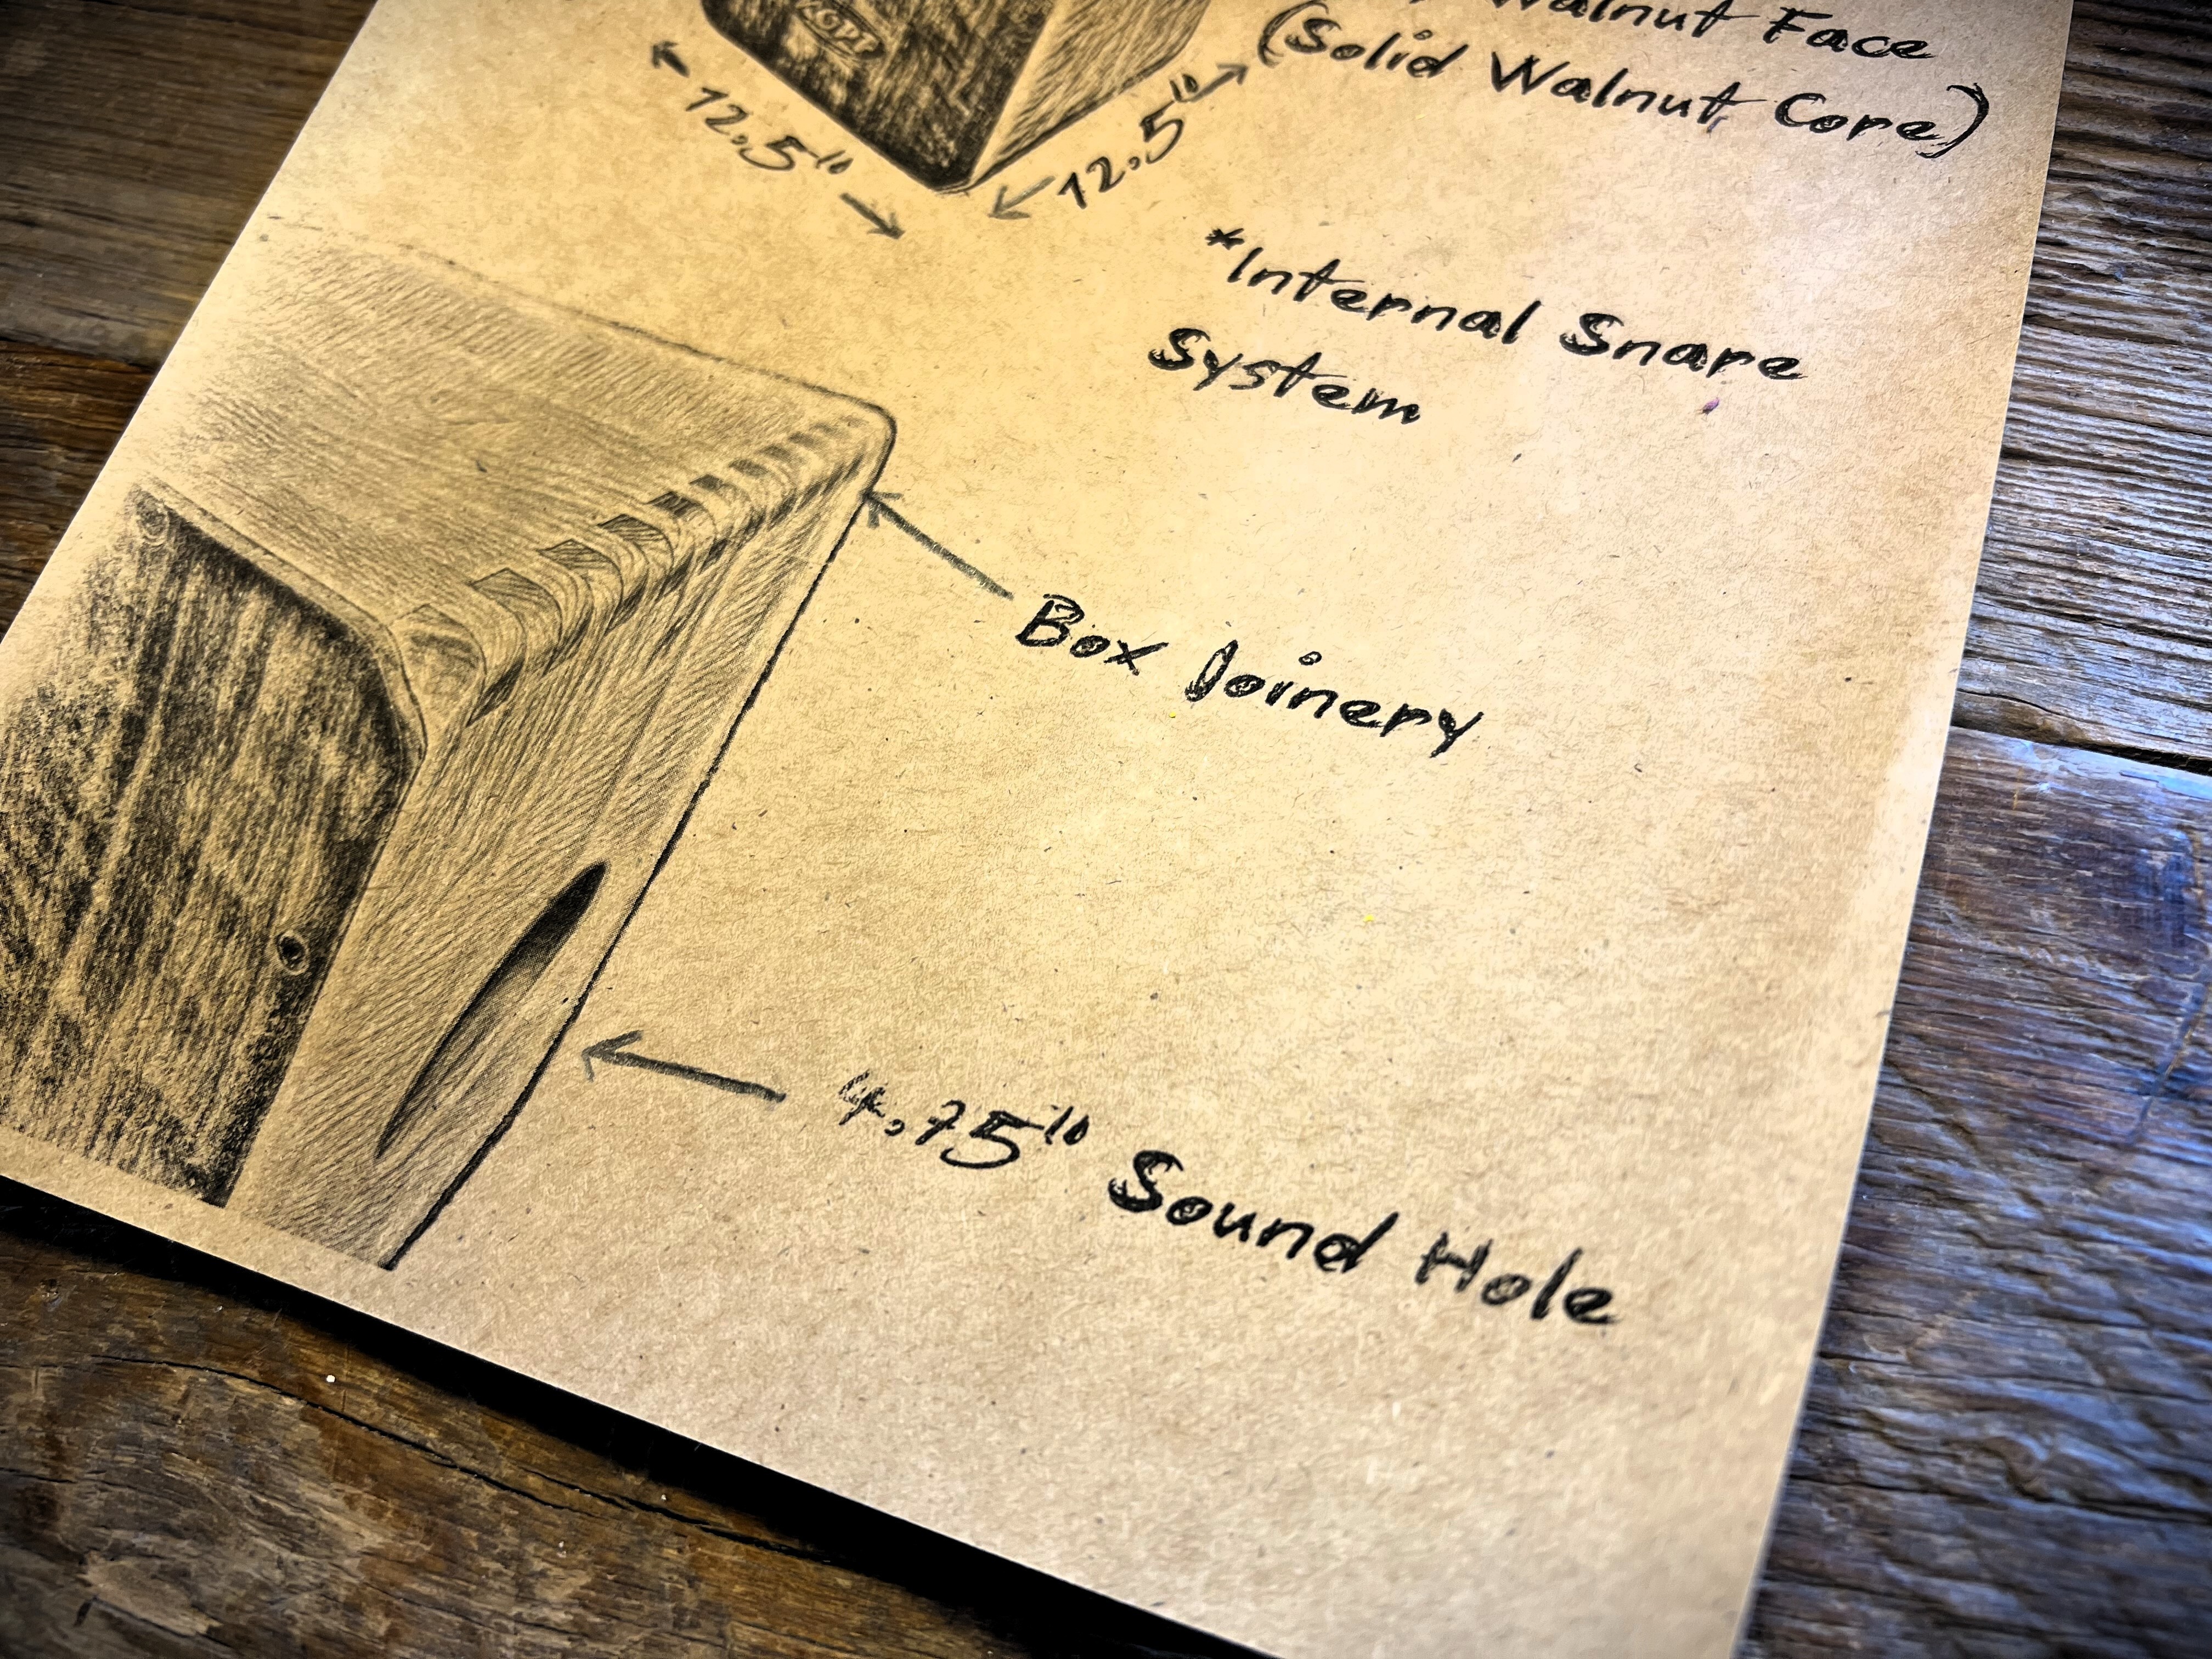 Walnut Face
(Solid Walnut Core)
12.5"
12.5"
*Internal Snare
System
Box Joinery
4.75" Sound Hole